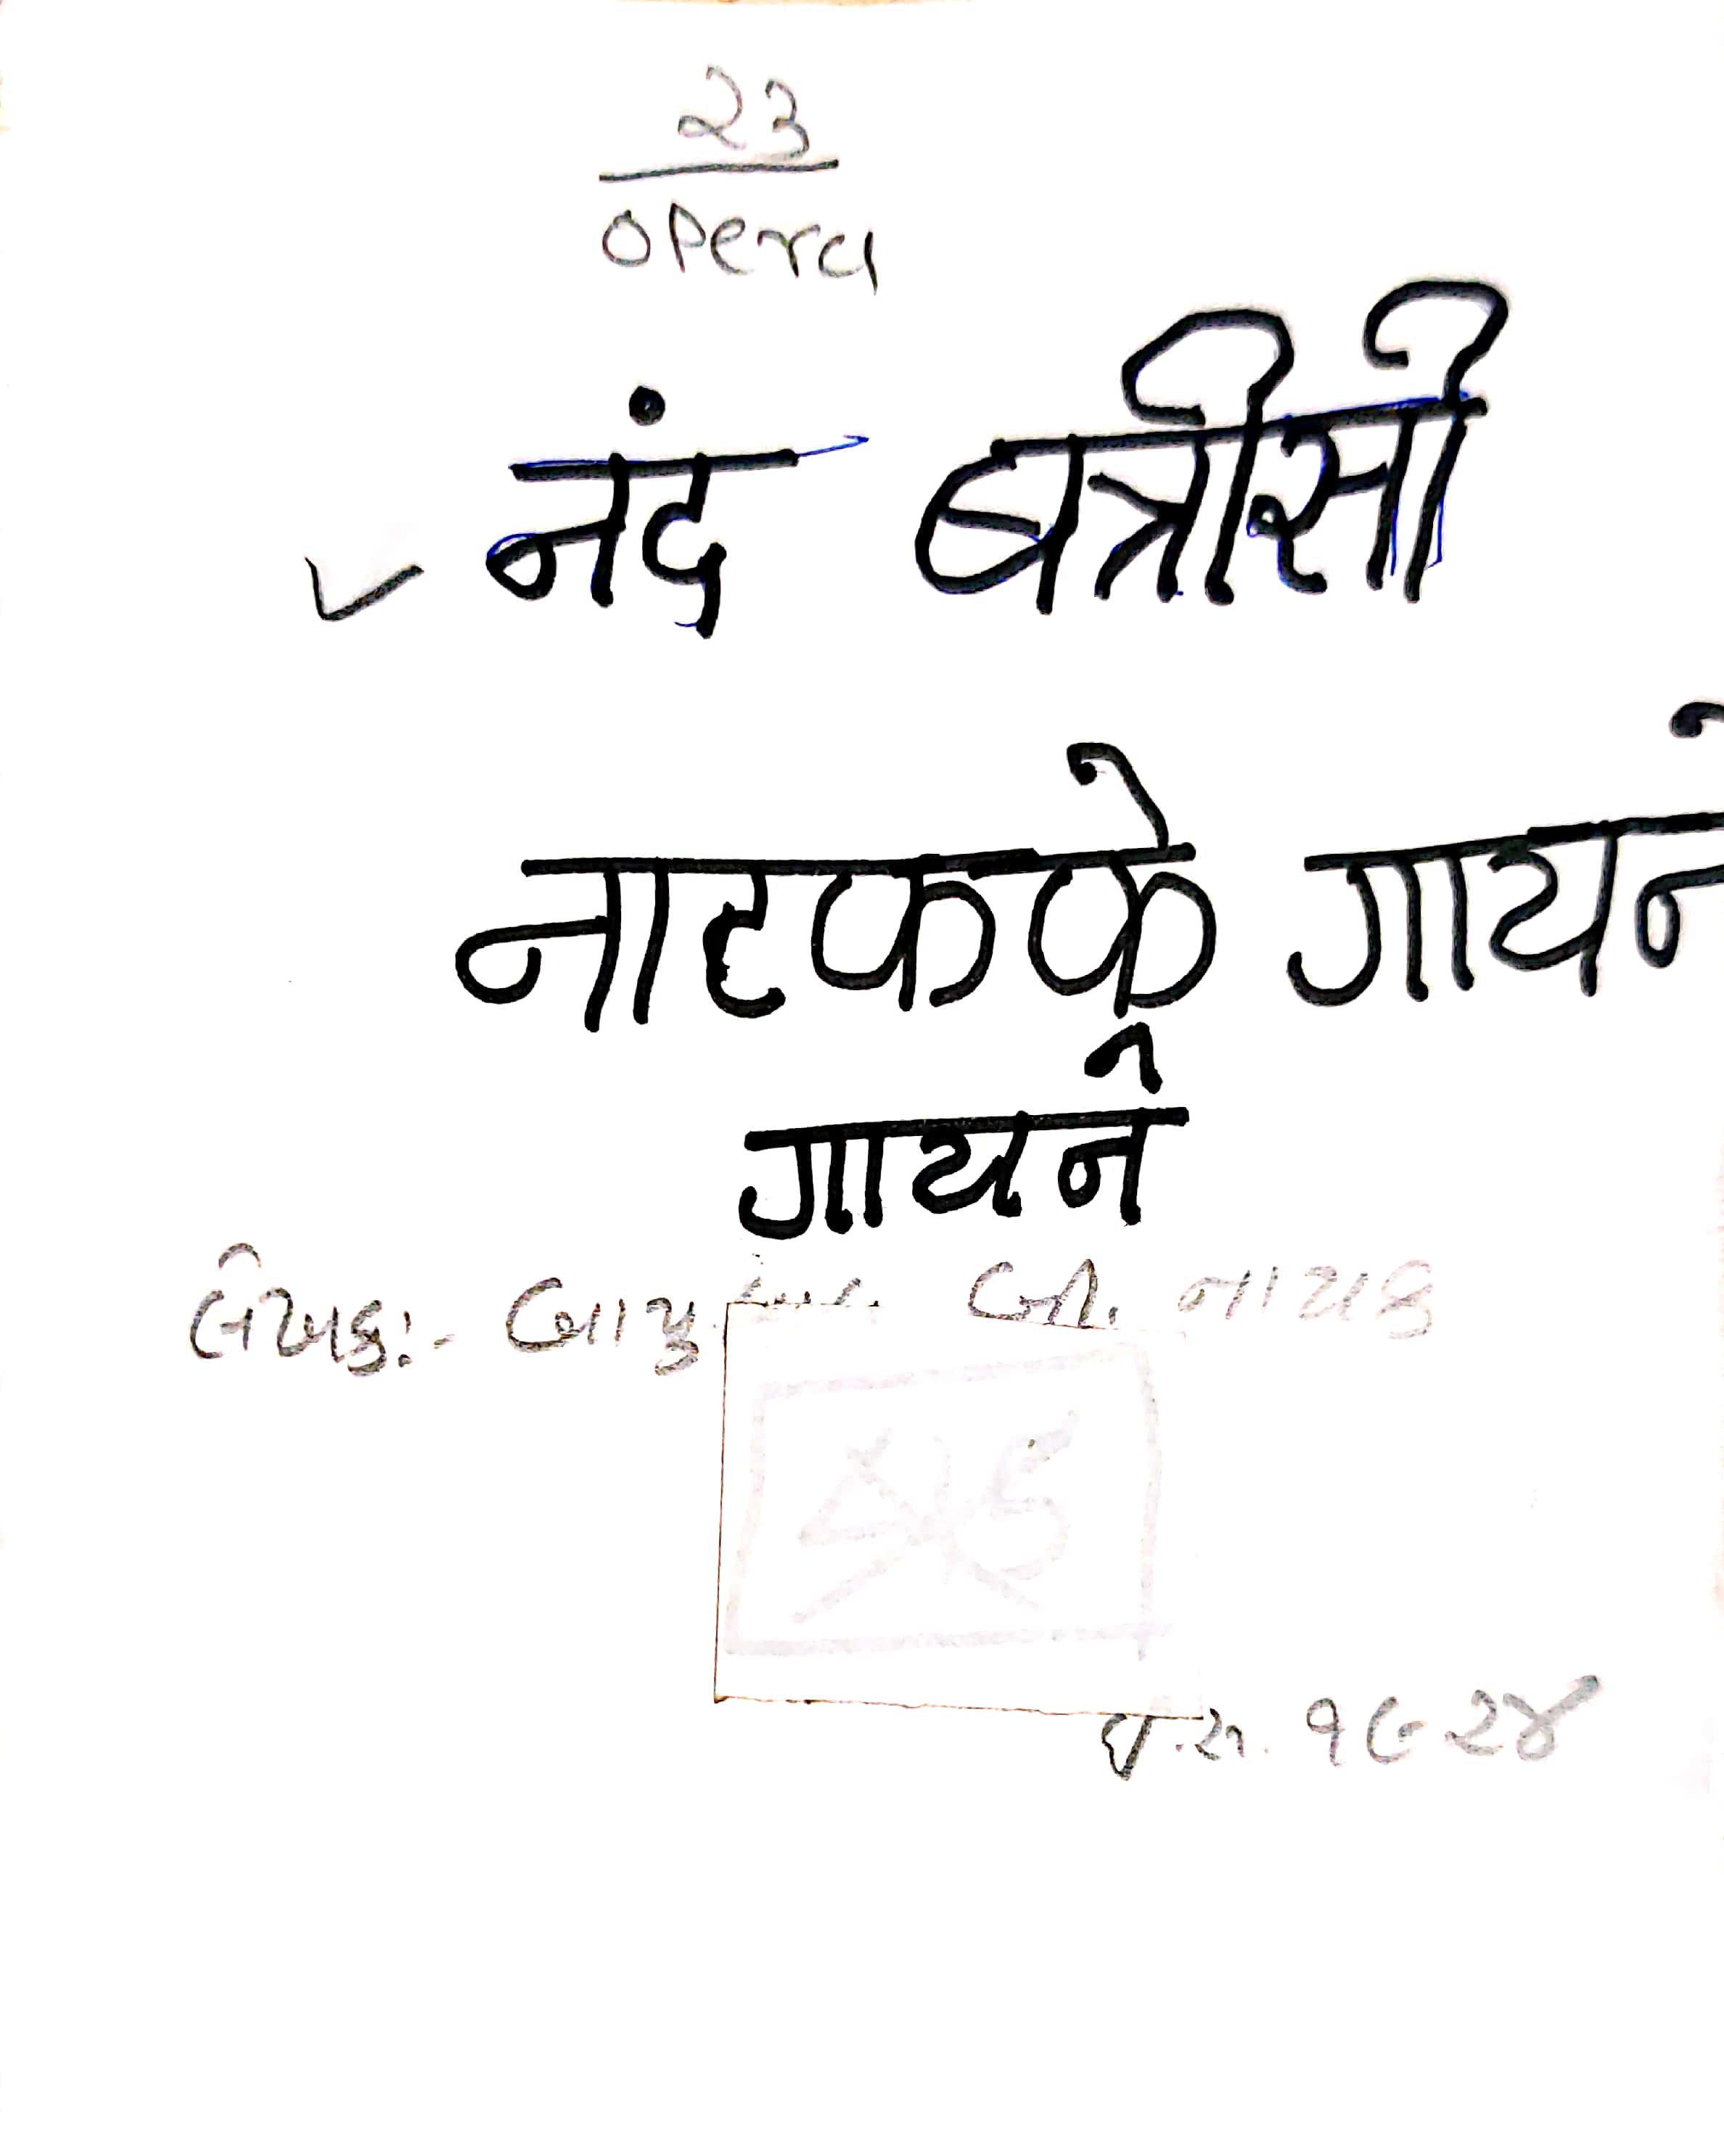 ૨૩
opera
नंद बत्रीसी
नाटकके गायने
गायने
લેખક:- બાપુ બી. નાયક
ઇ.સ. ૧૯૨૪